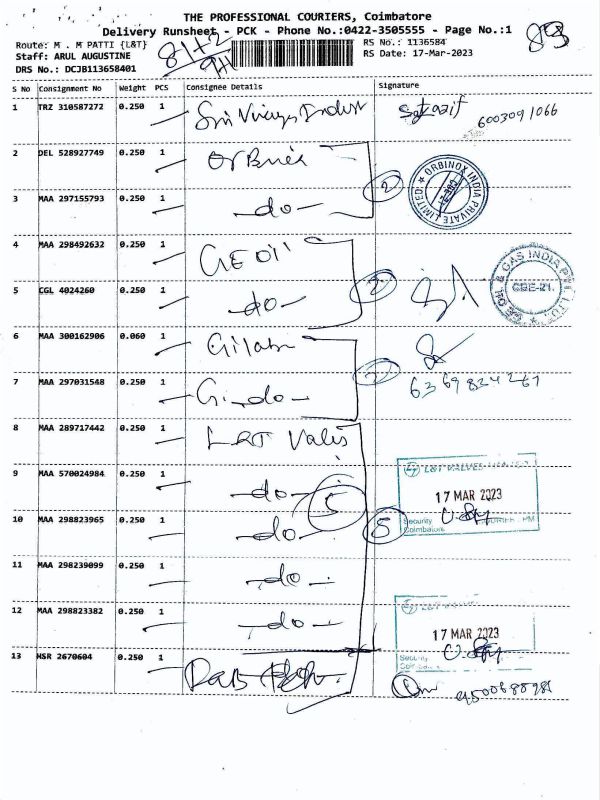 THE PROFESSIONAL COURIERS, Coimbatore
Delivery Runsheet - PCK - Phone No.:0422-3505555 - Page No.:1
Route: M . M PATTI {L&T} RS No.: 1136584
Staff: ARUL AUGUSTINE RS Date: 17-Mar-2023
DRS No.: DCJB113658401
81+2
S No Consignment No Weight PCS Consignee Details Signature
1 TRZ 310587272 0.250 1
6003091066
2 DEL 528927749 0.250 1
ORBINOX INDIA PRIVATE LIMITED
2
3 MAA 297155793 0.250 1 -do-
4 MAA 298492632 0.250 1 GE Oil
GE OIL & GAS INDIA PVT LTD
CBE-21.
2
5 CGL 4024260 0.250 1 -do-
6 MAA 300162906 0.060 1
2
7 MAA 297031548 0.250 1 -do-
6369824267
8 MAA 289717442 0.250 1 L&T Valves
L&T VALVES LIMITED
9 MAA 570024984 0.250 1 -do- 5
17 MAR 2023
10 MAA 298823965 0.250 1 -do- 5
Security
Coimbatore
11 MAA 298239099 0.250 1 -do-
12 MAA 298823382 0.250 1 -do-
L&T VALVES
17 MAR 2023
Security
13 HSR 2670604 0.250 1